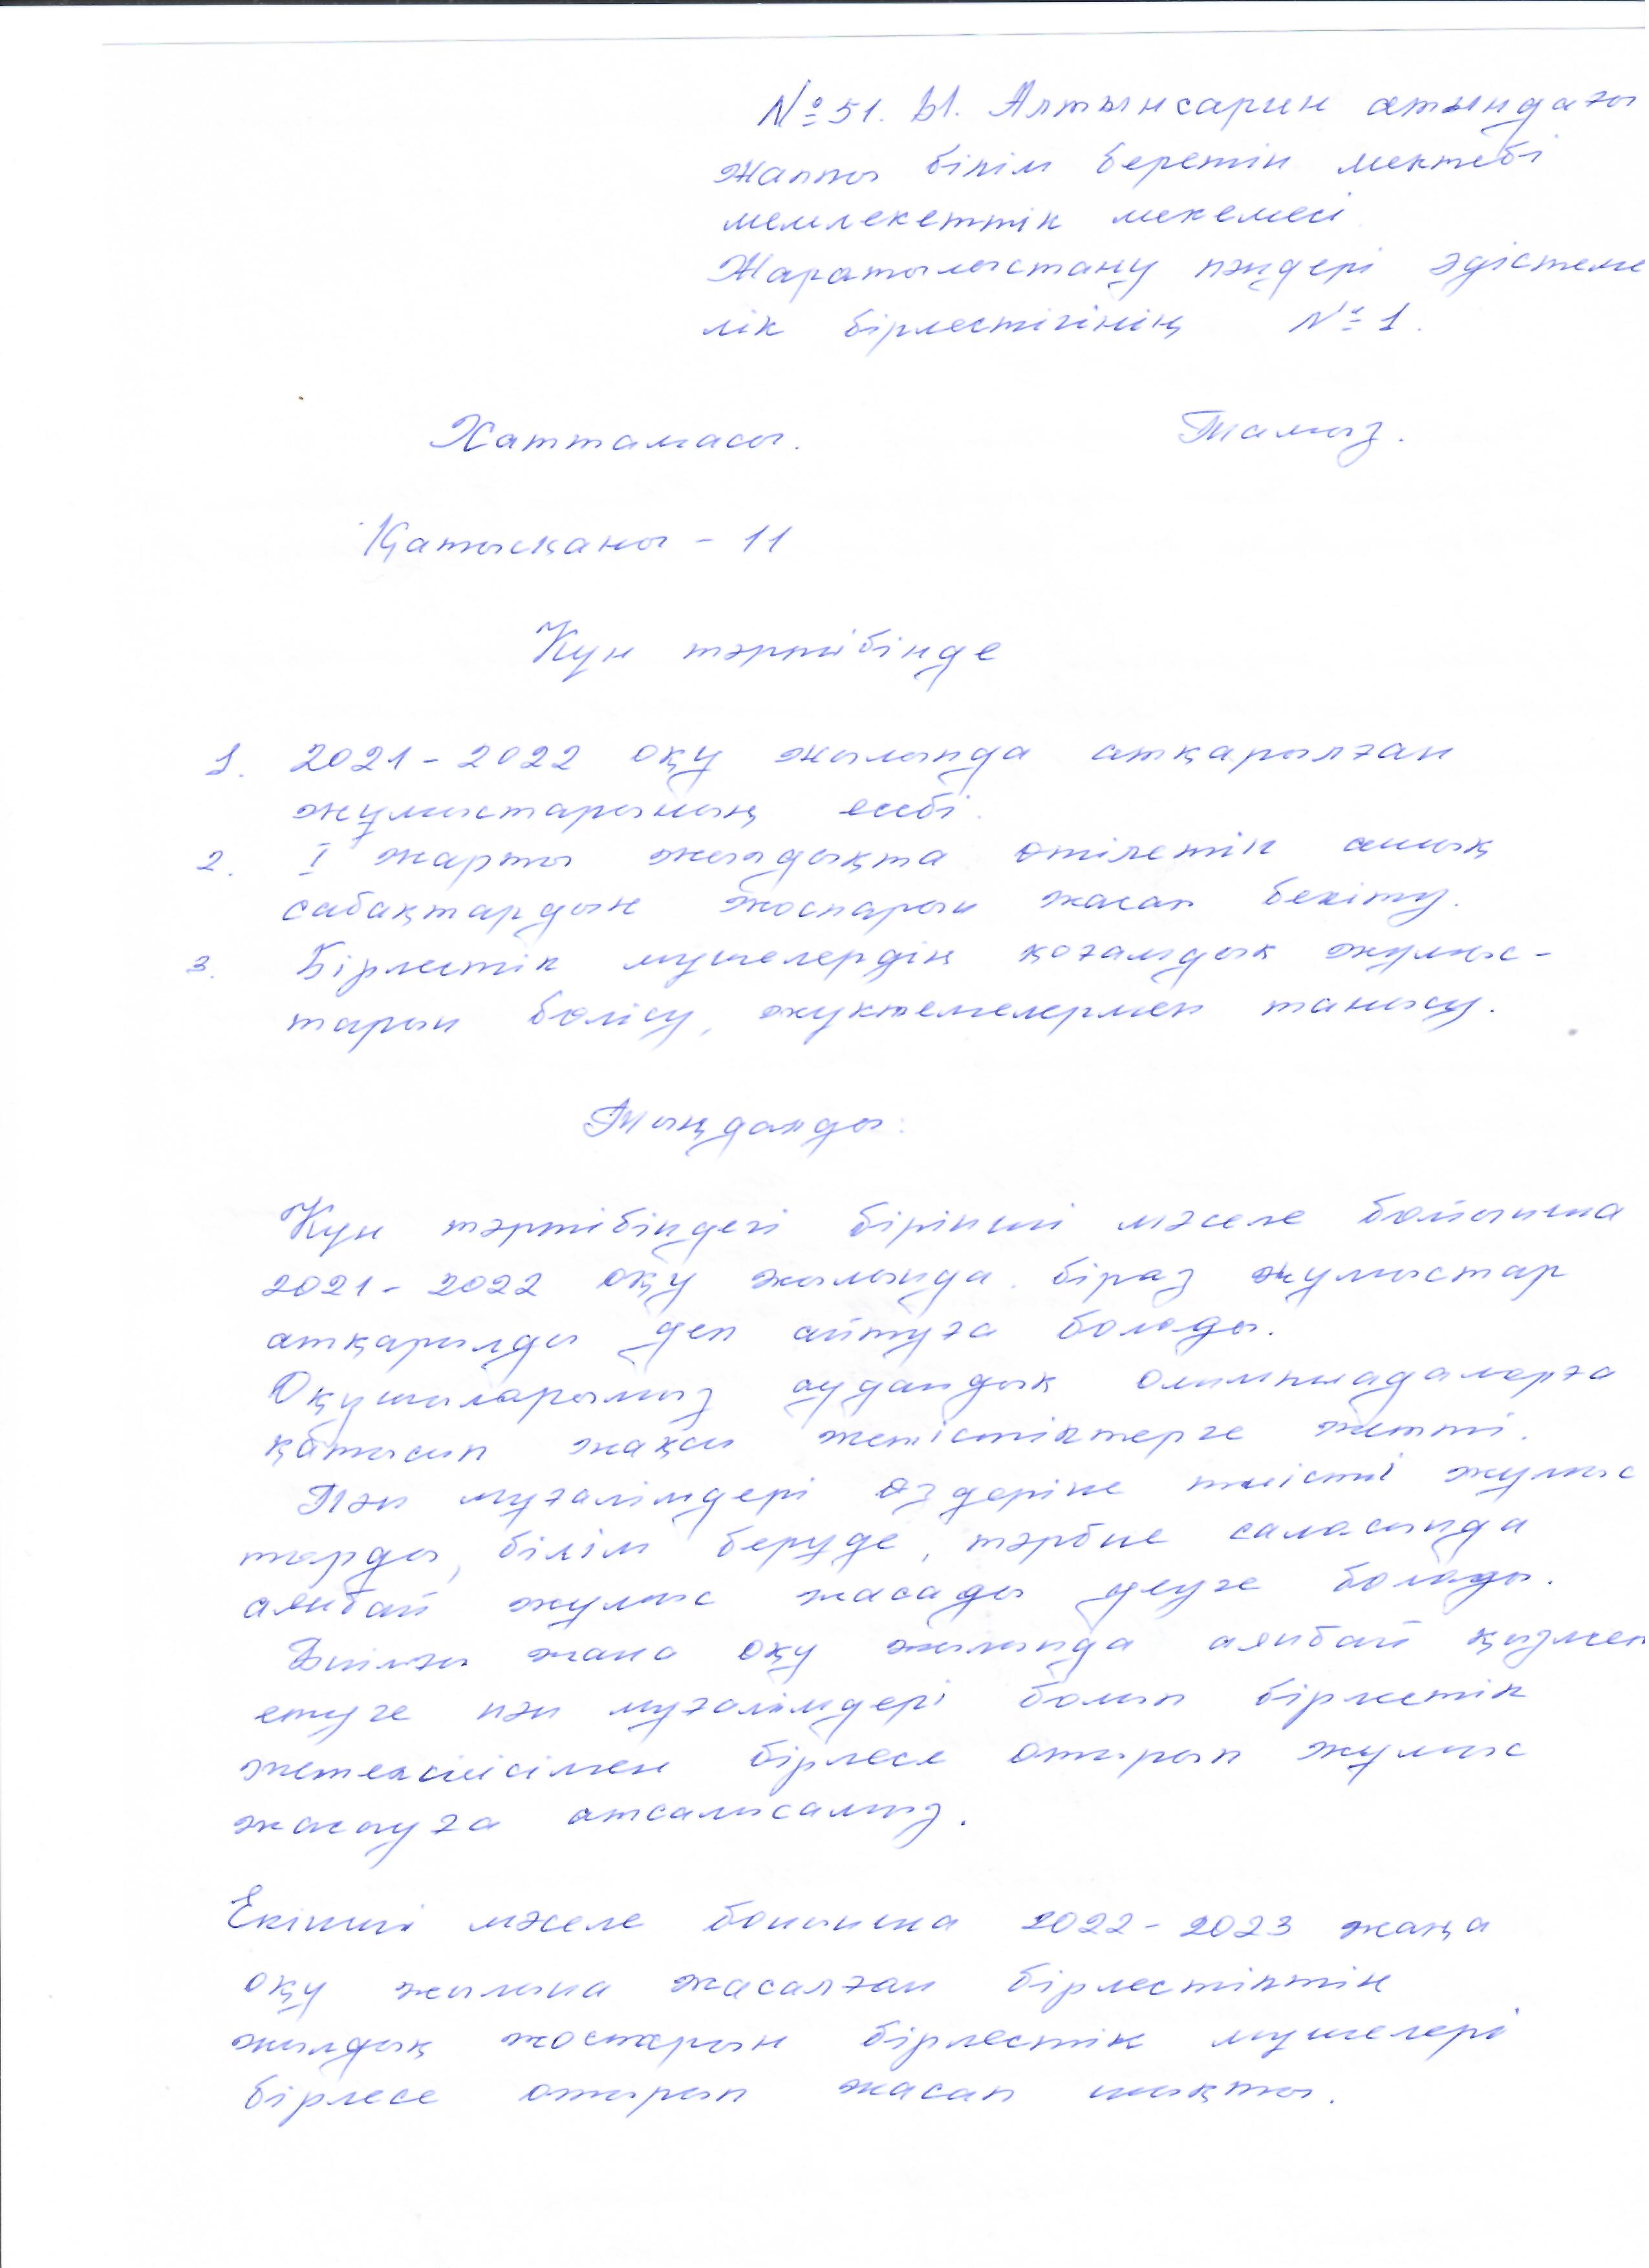 № 51. Ы. Алтынсарин атындағы
жалпы білім беретін мектебі
мемлекеттік мекемесі
Жаратылыстану пәндері әдістеме
лік бірлестігінің № 1.
Хаттамасы. Тамыз.
Қатысқаны - 11
Күн тәртібінде
1. 2021-2022 оқу жылында атқарылған
жұмыстарының есебі.
2. I жарты жылдықта өтілетін ашық
сабақтардын жоспарын жасап бекіту.
3. Бірлестік мүшелердің қоғамдық жұмыс-
тарын бөлісу, жүктемелермен танысу.
Тыңдалды:
Күн тәртібіндегі бірінші мәселе бойынша
2021-2022 оқу жылында біраз жұмыстар
атқарылды деп айтуға болады.
Оқушыларымыз аудандық олимпиадаларға
қатысып жақсы жетістіктерге жетті.
Пән мұғалімдері өздеріне тиісті жұмыс
тарды, білім беруде, тәрбие саласында
аянбай жұмыс жасады деуге болады.
Биылғы жана оқу жылында аянбай қызмет
етуге пән мұғалімдері болып бірлестік
жетекшісімен бірлесе отырып жұмыс
жасауға атсалысамыз.
Екінші мәселе бойынша 2022-2023 жаңа
оқу жылына жасалған бірлестіктін
жылдық жоспарын бірлестік мүшелері
бірлесе отырып жасап шықты.